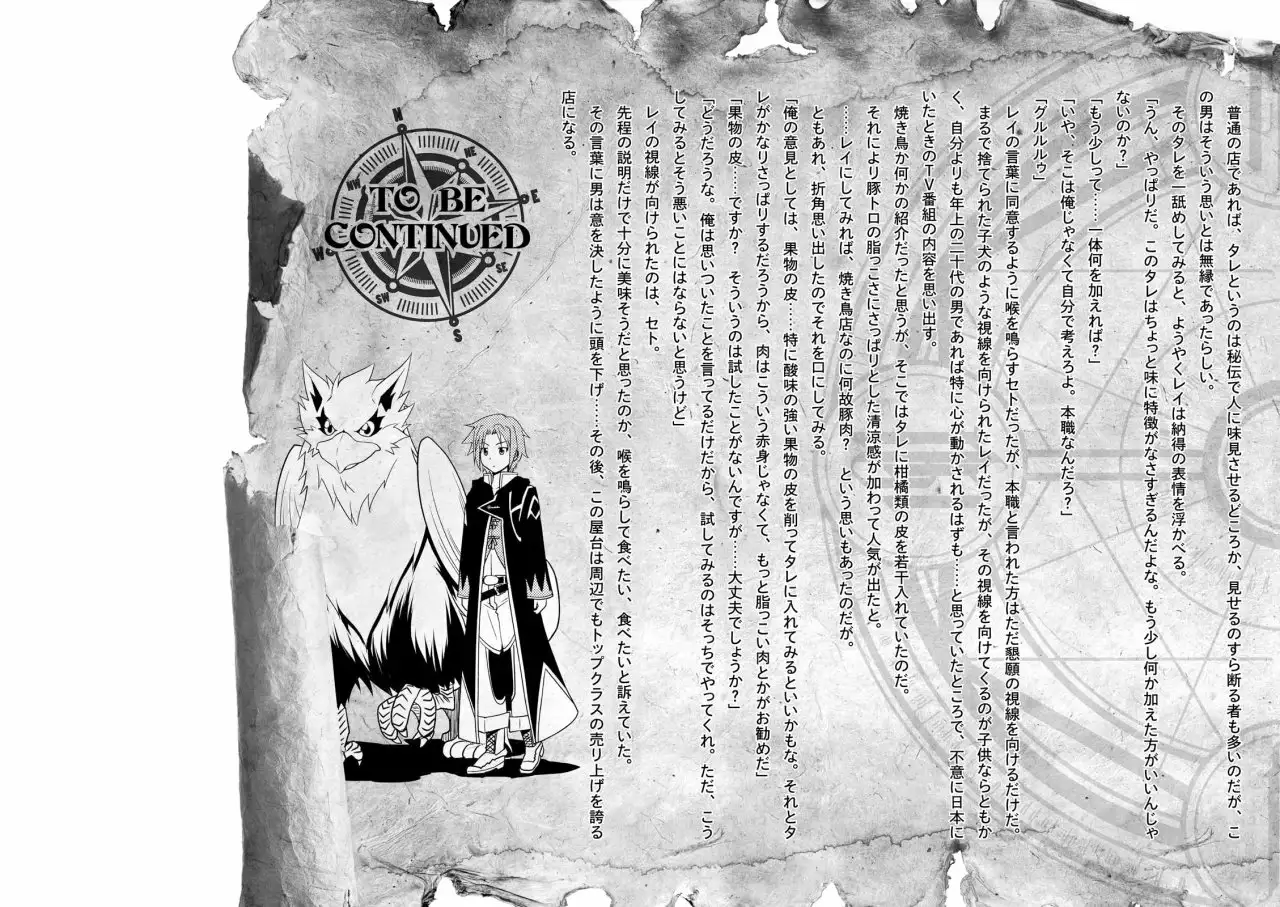 普通の店であれば、タレというのは秘伝で人に味見させるどころか、見せるのすら断る者も多いのだが、こ
の男はそういう思いとは無縁であったらしい。
そのタレを一舐めしてみると、ようやくレイは納得の表情を浮かべる。
「うん、やっぱりだ。このタレはちょっと味に特徴がなさすぎるんだよな。もう少し何か加えた方がいいんじゃ
ないのか？」
「もう少しって……一体何を加えれば？」
「いや、そこは俺じゃなくて自分で考えろよ。本職なんだろ？」
「グルルルゥ」
レイの言葉に同意するように喉を鳴らすセトだったが、本職と言われた方はただ懇願の視線を向けるだけだ。
まるで捨てられた子犬のような視線を向けられたレイだったが、その視線を向けてくるのが子供ならともか
く、自分よりも年上の二十代の男であれば特に心が動かされるはずも……と思っていたところで、不意に日本に
いたときのTV番組の内容を思い出す。
焼き鳥か何かの紹介だったと思うが、そこではタレに柑橘類の皮を若干入れていたのだ。
それにより豚トロの脂っこさにさっぱりとした清涼感が加わって人気が出たと。
……レイにしてみれば、焼き鳥店なのに何故豚肉？　という思いもあったのだが。
ともあれ、折角思い出したのでそれを口にしてみる。
「俺の意見としては、果物の皮……特に酸味の強い果物の皮を削ってタレに入れてみるといいかもな。それとタ
レがかなりさっぱりするだろうから、肉はこういう赤身じゃなくて、もっと脂っこい肉とかがお勧めだ」
「果物の皮……ですか？　そういうのは試したことがないんですが……大丈夫でしょうか？」
「どうだろうな。俺は思いついたことを言ってるだけだから、試してみるのはそっちでやってくれ。ただ、こう
してみるとそう悪いことにはならないと思うけど」
レイの視線が向けられたのは、セト。
先程の説明だけで十分に美味そうだと思ったのか、喉を鳴らして食べたい、食べたいと訴えていた。
その言葉に男は意を決したように頭を下げ……その後、この屋台は周辺でもトップクラスの売り上げを誇る
店になる。
N
NW
NE
W
E
TO BE
CONTINUED
SW
SE
S